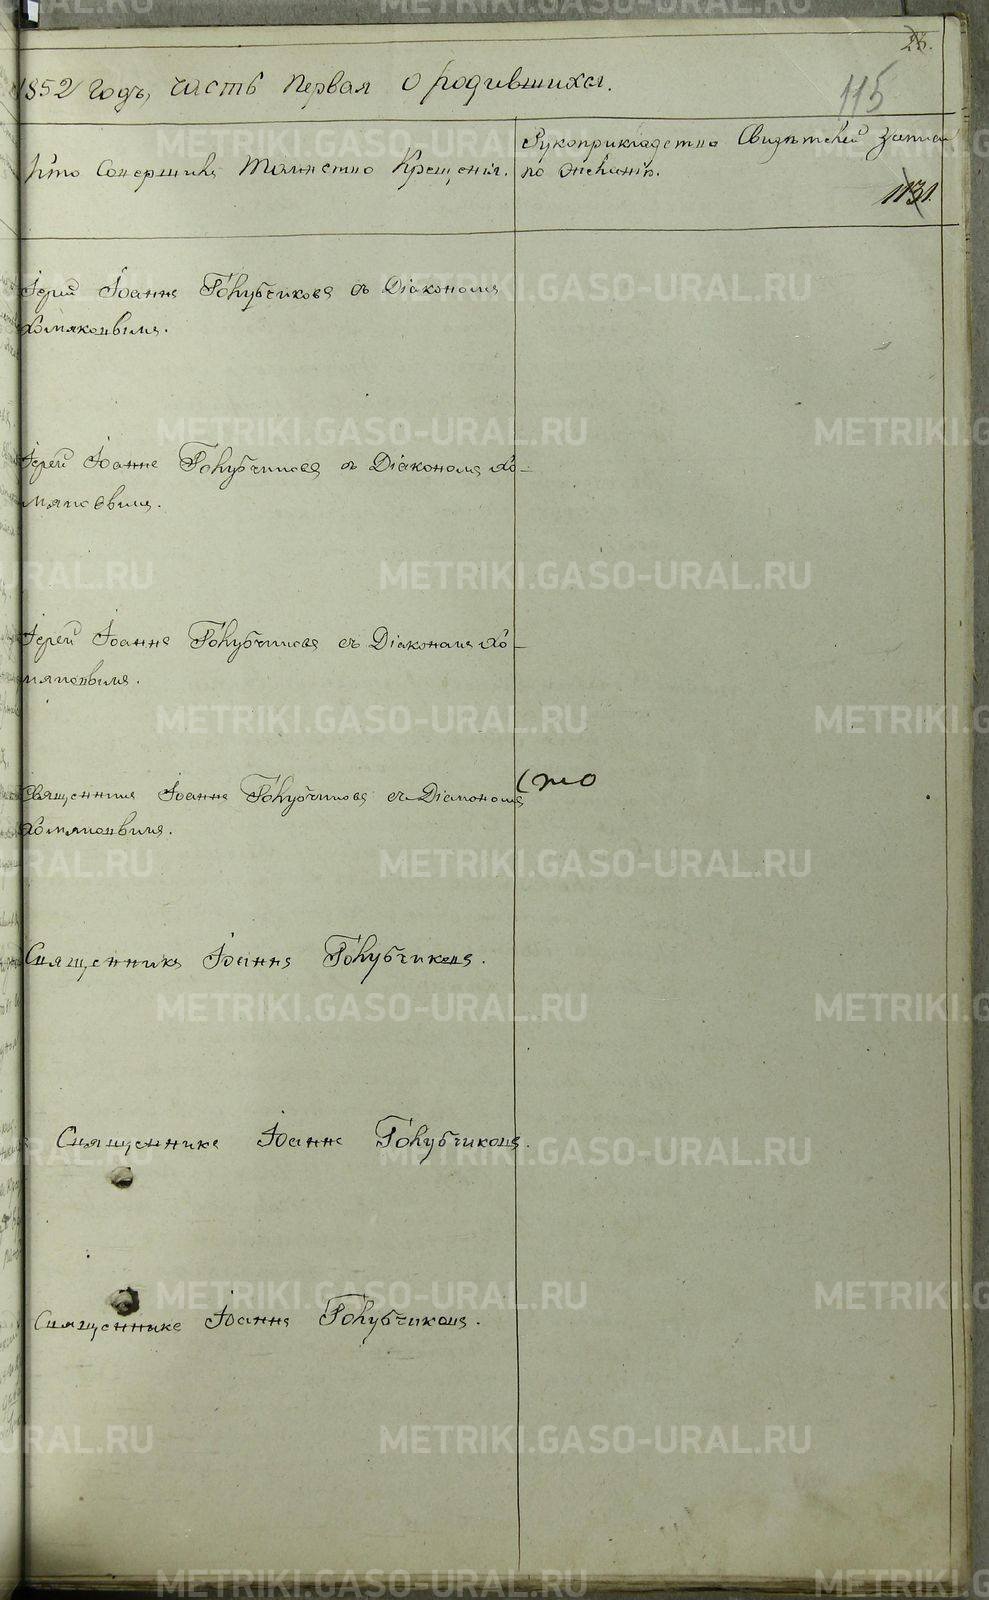 115
1852 Годъ, часть Первая о родившихся.
Кто Совершилъ Таинство Крещенія.
Рукоприкладство Свидѣтелей записи
по желанію.
1131.
Іерей Іоаннъ Голубчиковъ съ Діакономъ
Хомяковымъ.
Іерей Іоаннъ Голубчиковъ съ Діакономъ Хо-
мяковымъ.
Іерей Іоаннъ Голубчиковъ съ Діакономъ Хо-
мяковымъ.
Священникъ Іоаннъ Голубчиковъ съ Діакономъ
Хомяковымъ.
Священникъ Іоаннъ Голубчиковъ.
Священникъ Іоаннъ Голубчиковъ.
Священникъ Іоаннъ Голубчиковъ.
METRIKI.GASO-URAL.RU